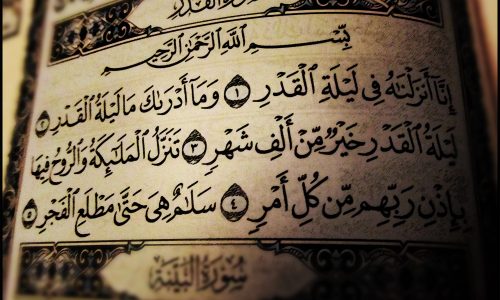 سورة القدر
بِسْمِ اللَّهِ الرَّحْمَٰنِ الرَّحِيمِ
إِنَّا أَنزَلْنَاهُ فِي لَيْلَةِ الْقَدْرِ ١ وَمَا أَدْرَاكَ مَا لَيْلَةُ الْقَدْرِ ٢
لَيْلَةُ الْقَدْرِ خَيْرٌ مِّنْ أَلْفِ شَهْرٍ ٣ تَنَزَّلُ الْمَلَائِكَةُ وَالرُّوحُ فِيهَا
بِإِذْنِ رَبِّهِم مِّن كُلِّ أَمْرٍ ٤ سَلَامٌ هِيَ حَتَّىٰ مَطْلَعِ الْفَجْرِ ٥
سُورَةُ البَيِّنَةِ